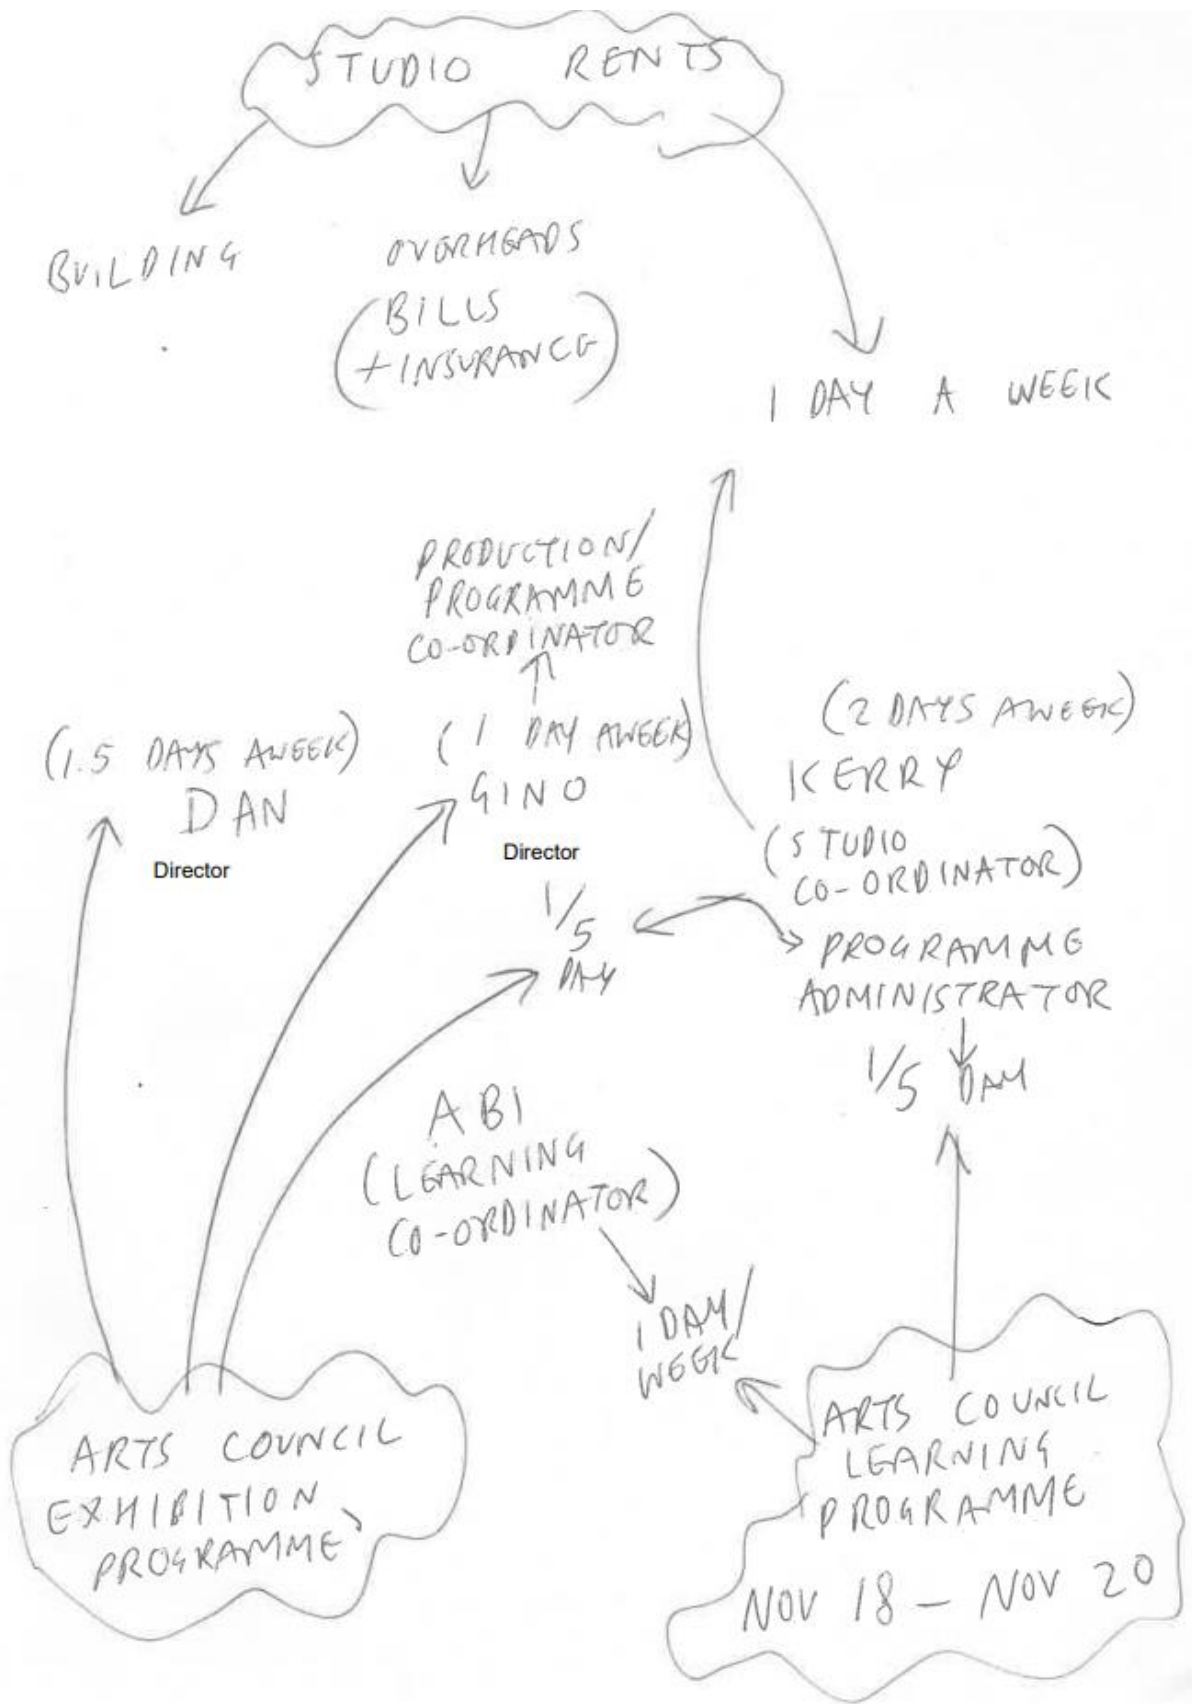 STUDIO RENTS
BUILDING
OVERHEADS
(BILLS
+ INSURANCE)
1 DAY A WEEK
PRODUCTION/
PROGRAMME
CO-ORDINATOR
(1.5 DAYS A WEEK)
DAN
Director
(1 DAY A WEEK)
GINO
Director
1/5
DAY
(2 DAYS A WEEK)
KERRY
(STUDIO
CO-ORDINATOR)
PROGRAMME
ADMINISTRATOR
1/5 DAY
ABI
(LEARNING
CO-ORDINATOR)
1 DAY/
WEEK
ARTS COUNCIL
EXHIBITION
PROGRAMME
ARTS COUNCIL
LEARNING
PROGRAMME
NOV 18 - NOV 20